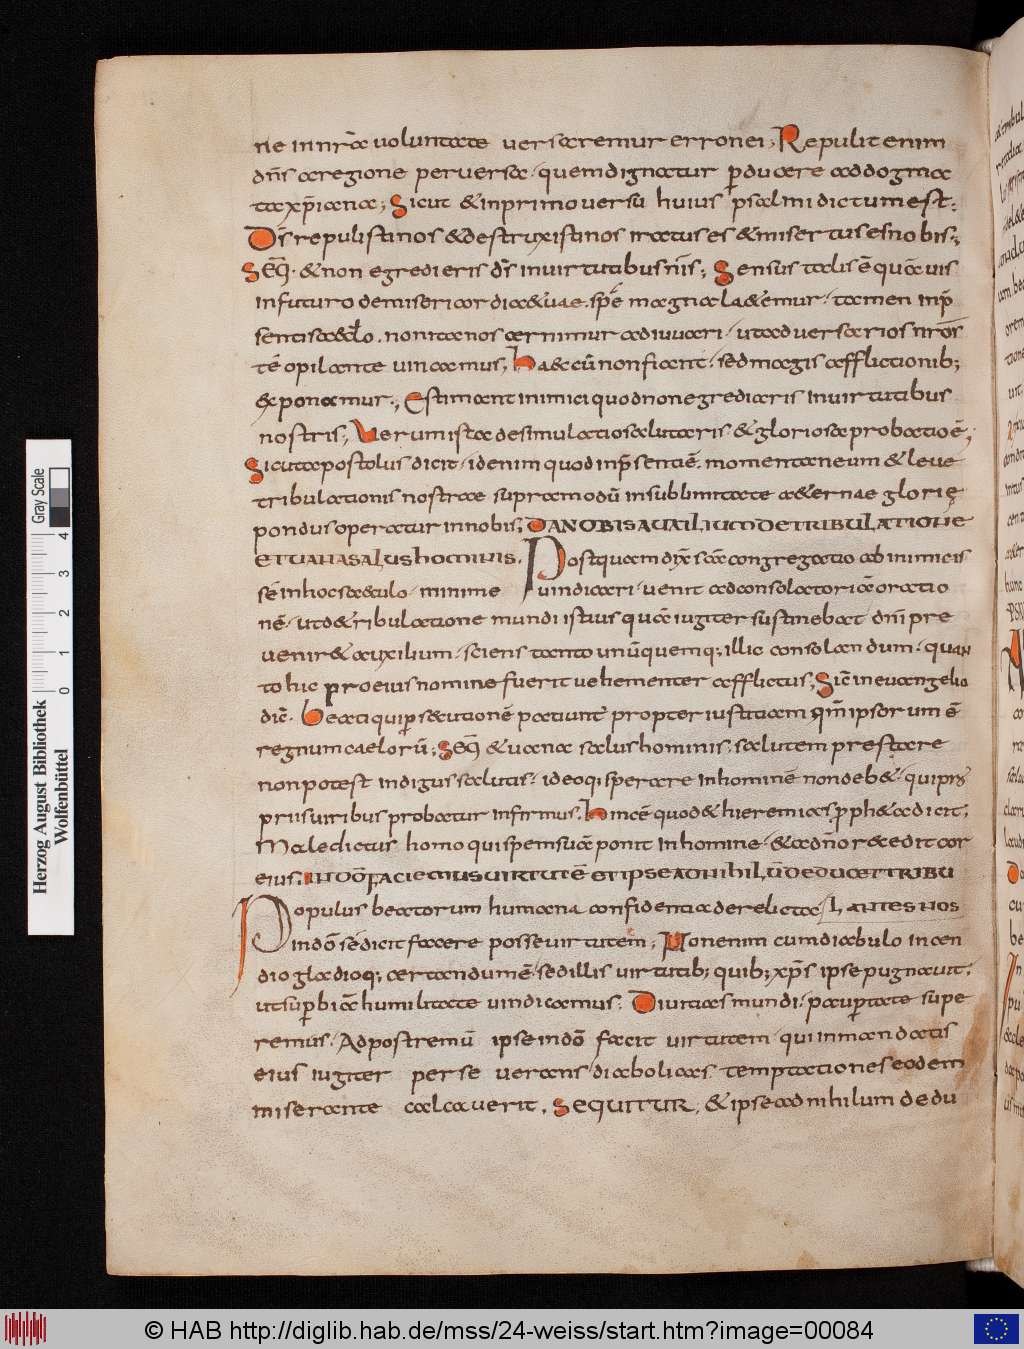 ne in nr̄a uoluntate uersaremur erronei; Repulit enim
dn̄s aregione peruersa · quem dignatur ꝑducere ad dogma
ta xp̄iana; Sicut & inprimo uersu huius psalmi dictum est:
Ds̄ repulisti nos & destruxisti nos iratus es & misertus es nobis;
SEQ̄ · & non egredieris ds̄ inuirtutibus nr̄is; Sensus talis ē quā uis
infuturo de misericordia & uae spē magna la&emur · tamen inp̄
senti sae&lo · non ita nos cernimur adiuuari · ut aduersarios nr̄os
tē opilante uincamus; haec cū non fiant · sed magis afflictionib;
exponamur; Estimant inimici quod non egrediaris inuirtutibus
nostris; Uerum ista desimulatio salutaris & gloriosa probatio ē;
Sicut apostolus dicit · id enim quod inp̄senti ē · momentaneum & leue
tribulationis nostrae supra modū insublimitate a&ernae glorię
pondus operatur in nobis; DA NOBIS AUXILIUM DE TRIBULATIONE
ET UANA SALUS HOMINIS. Postquam dix̄ scā congregatio ab inimicis
sē inhoc saeculo minime uindicari · uenit ad consolatoriā oratio
nē · ut d&ribulatione mundi istius quā iugiter sustinebat dn̄i pre
uenir& auxilium · sciens tanto unūquemq; illic consolandum · quan
to hic pro eius nomine fuerit uehementer afflictus; Sic̄ in euangelio
dic̄ · beati qui ꝑsecutionē patiunt̄ propter iustitiam qm̄ ipsorum ē
regnum caelorū; SEQ̄ & uana salus hominis · salutem prestare
non potest indigus salutis · ideoq; sperare in hominē non deb& · qui pro
priis uiribus probatur infirmus. hinc ē quod & hieremias ꝓph&a dicit;
Maledictus homo qui spem suā ponit in homine · & a dn̄o recedit cor
eius. IN DŌ FACIEMUS UIRTUTĒ ET IPSE AD NIHILŪ DEDUCET TRIBU
Populus beatorum humana confidentia derelicta / LANTES NOS
in dō sē dicit facere posse uirtutem; Non enim cum diabulo incen
dio gladioq; certandum ē · sed illis uirtutib; quib; xp̄s ipse pugnauit.
ut suꝑbiā humilitate uindicamus. Diuitias mundi · pauꝑtate supe
remus. Ad postremū ipse in dō facit uirtutem · qui in mandatis
eius iugiter perseuerans · diabolicas temptationes eodem
miserante calcauerit. SEQUITUR, & ipse ad nihilum dedu
Herzog August Bibliothek
Wolfenbüttel
Gray Scale
0 1 2 3 4
© HAB http://diglib.hab.de/mss/24-weiss/start.htm?image=00084